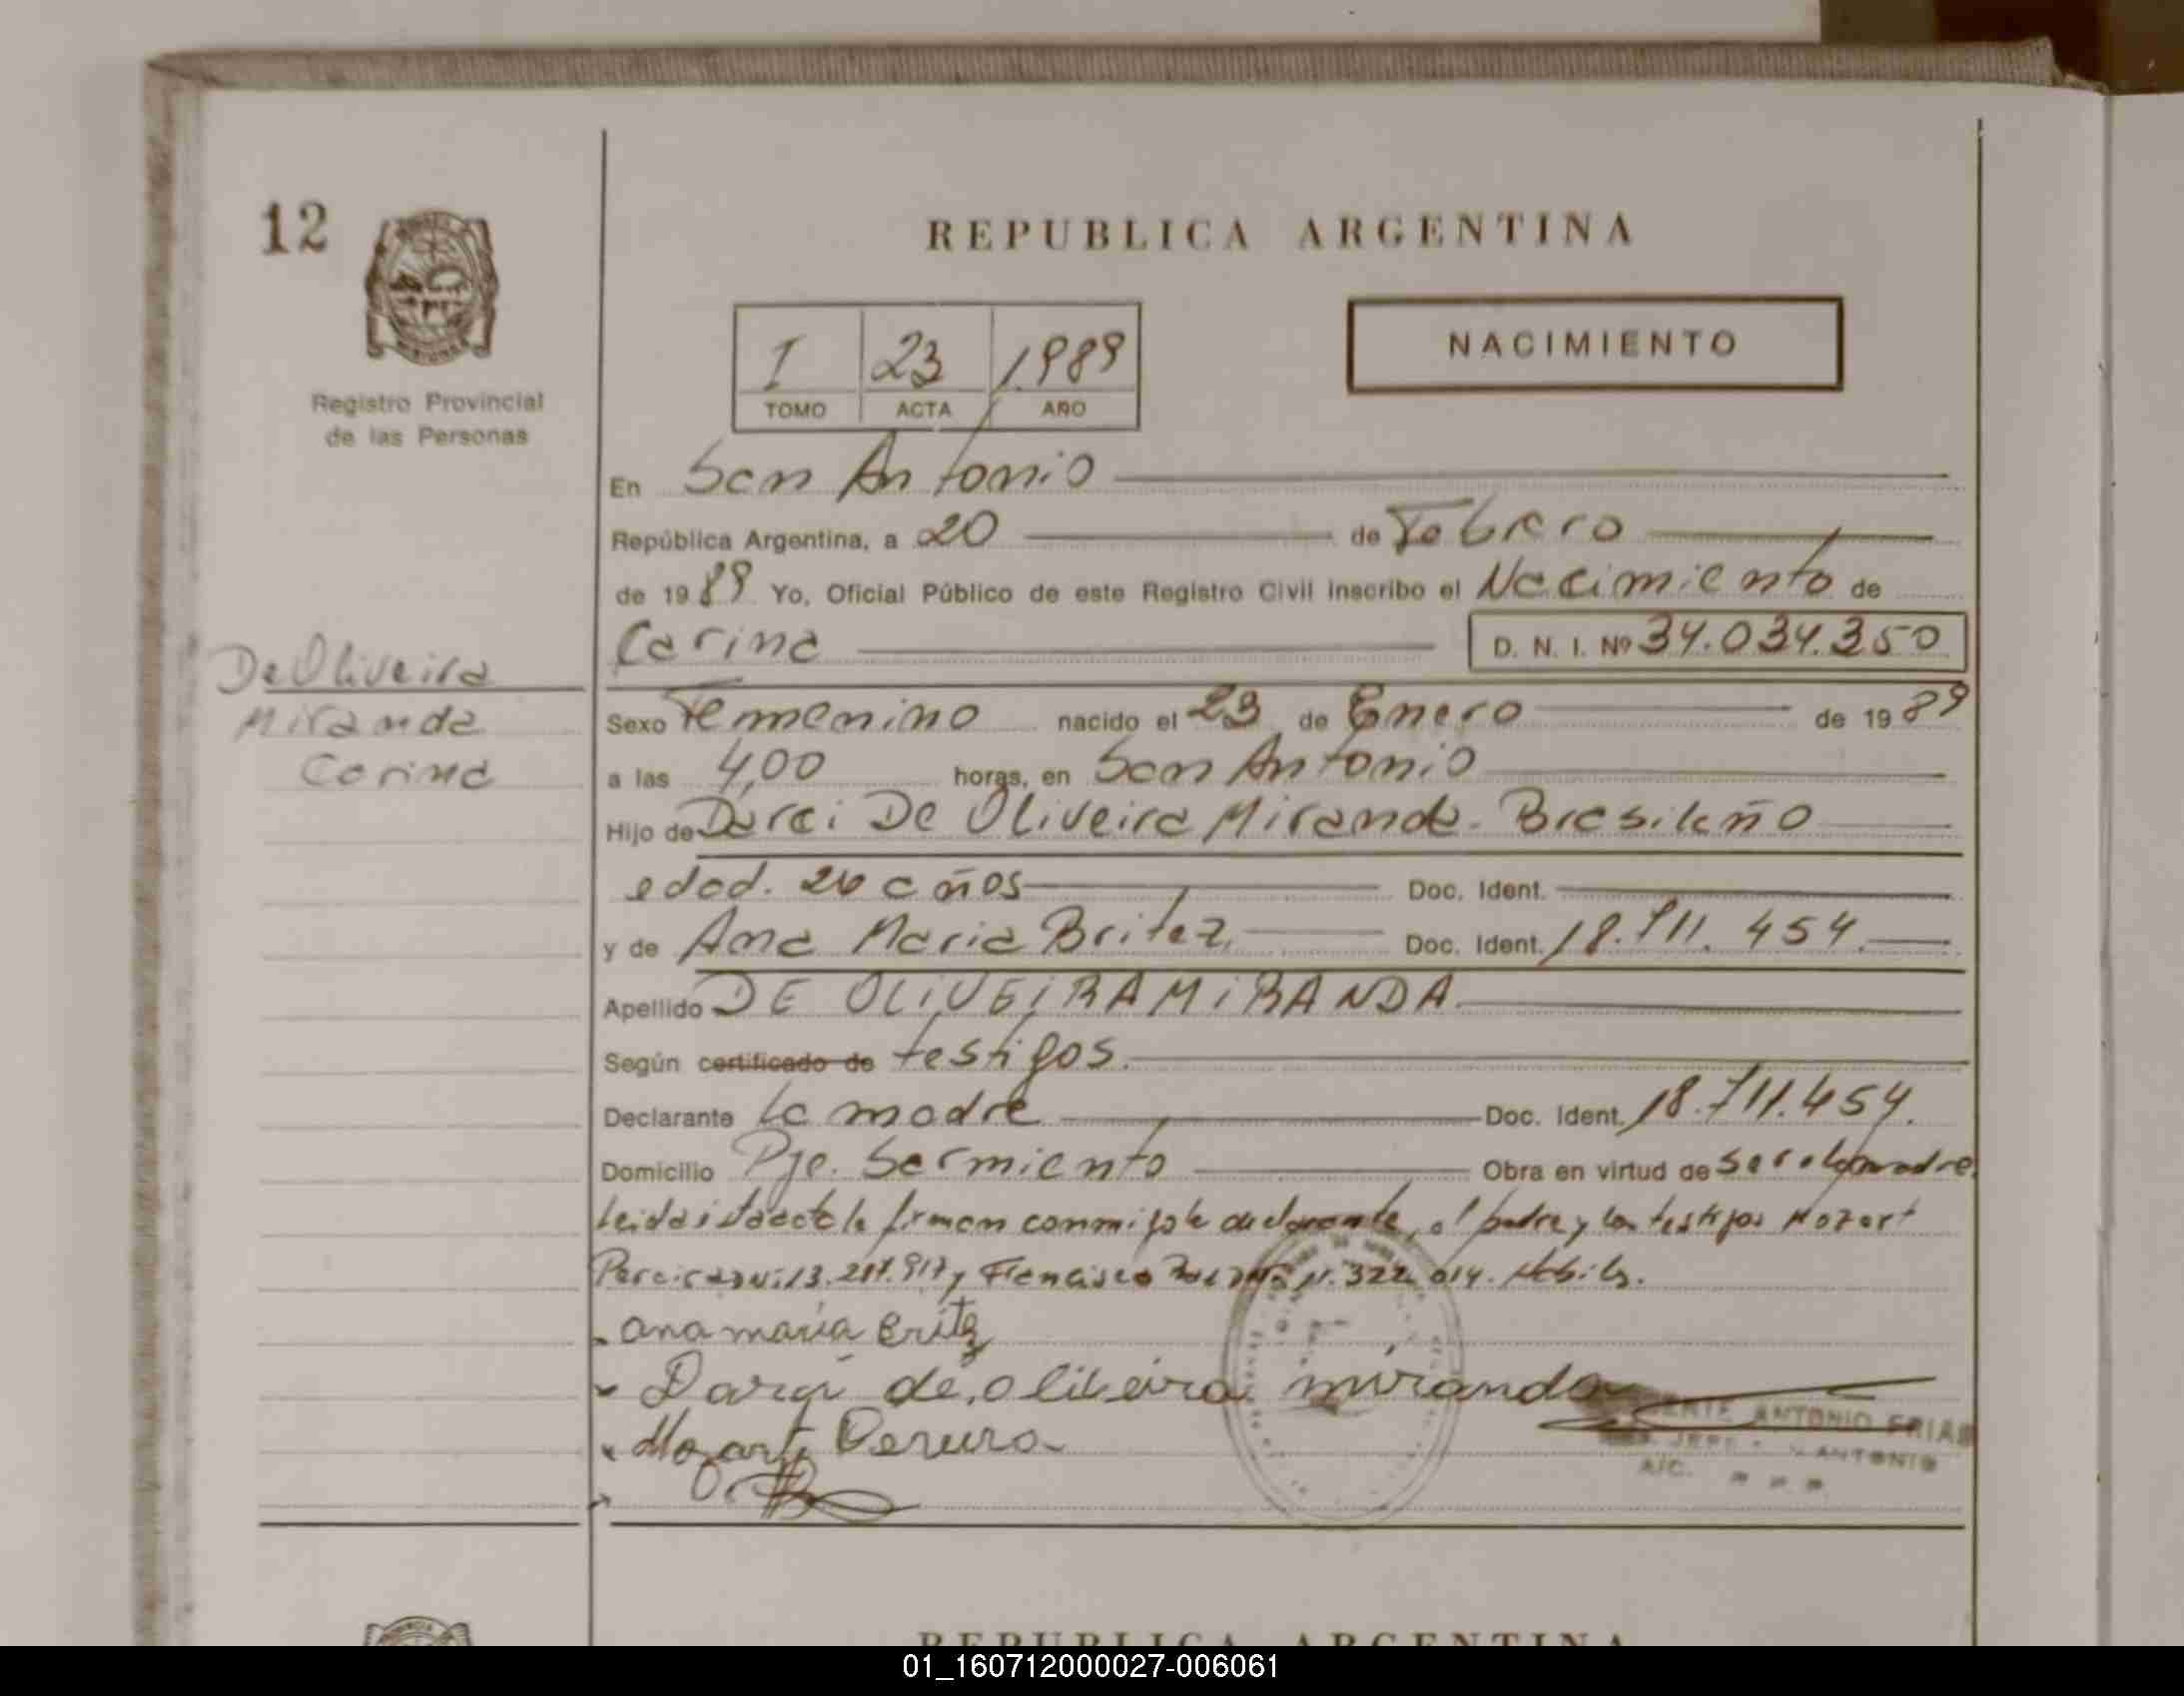 12
REPUBLICA ARGENTINA
NACIMIENTO
I 23 1989
TOMO ACTA AÑO
Registro Provincial
de las Personas
En San Antonio
República Argentina, a 20 de Febrero
de 1989 Yo, Oficial Público de este Registro Civil inscribo el Nacimiento de
Carina D. N. I. Nº 34.034.350
De Oliveira
Miranda
Carina
Sexo Femenino nacido el 23 de Enero de 1989
a las 4,00 horas, en San Antonio
Hijo de Darci De Oliveira Miranda. Brasileño
edad. 26 años Doc. Ident.
y de Ana Maria Britez, Doc. Ident. 18.711.454.
Apellido DE OLIVEIRA MIRANDA.
Según certificado de testigos.
Declarante La madre Doc. Ident. 18.711.454.
Domicilio Pje. Sarmiento Obra en virtud de ser la madre.
Leida el acta la firman conmigo la declarante, el padre y los testigos Mozart
Francisco 322.014. Hábiles.
ana maria Britez
Darci de oliveira miranda
Mozart Pereira
ANTONIO FRIAS
ANTONIO
A/C.
REPUBLICA ARGENTINA
01_160712000027-006061